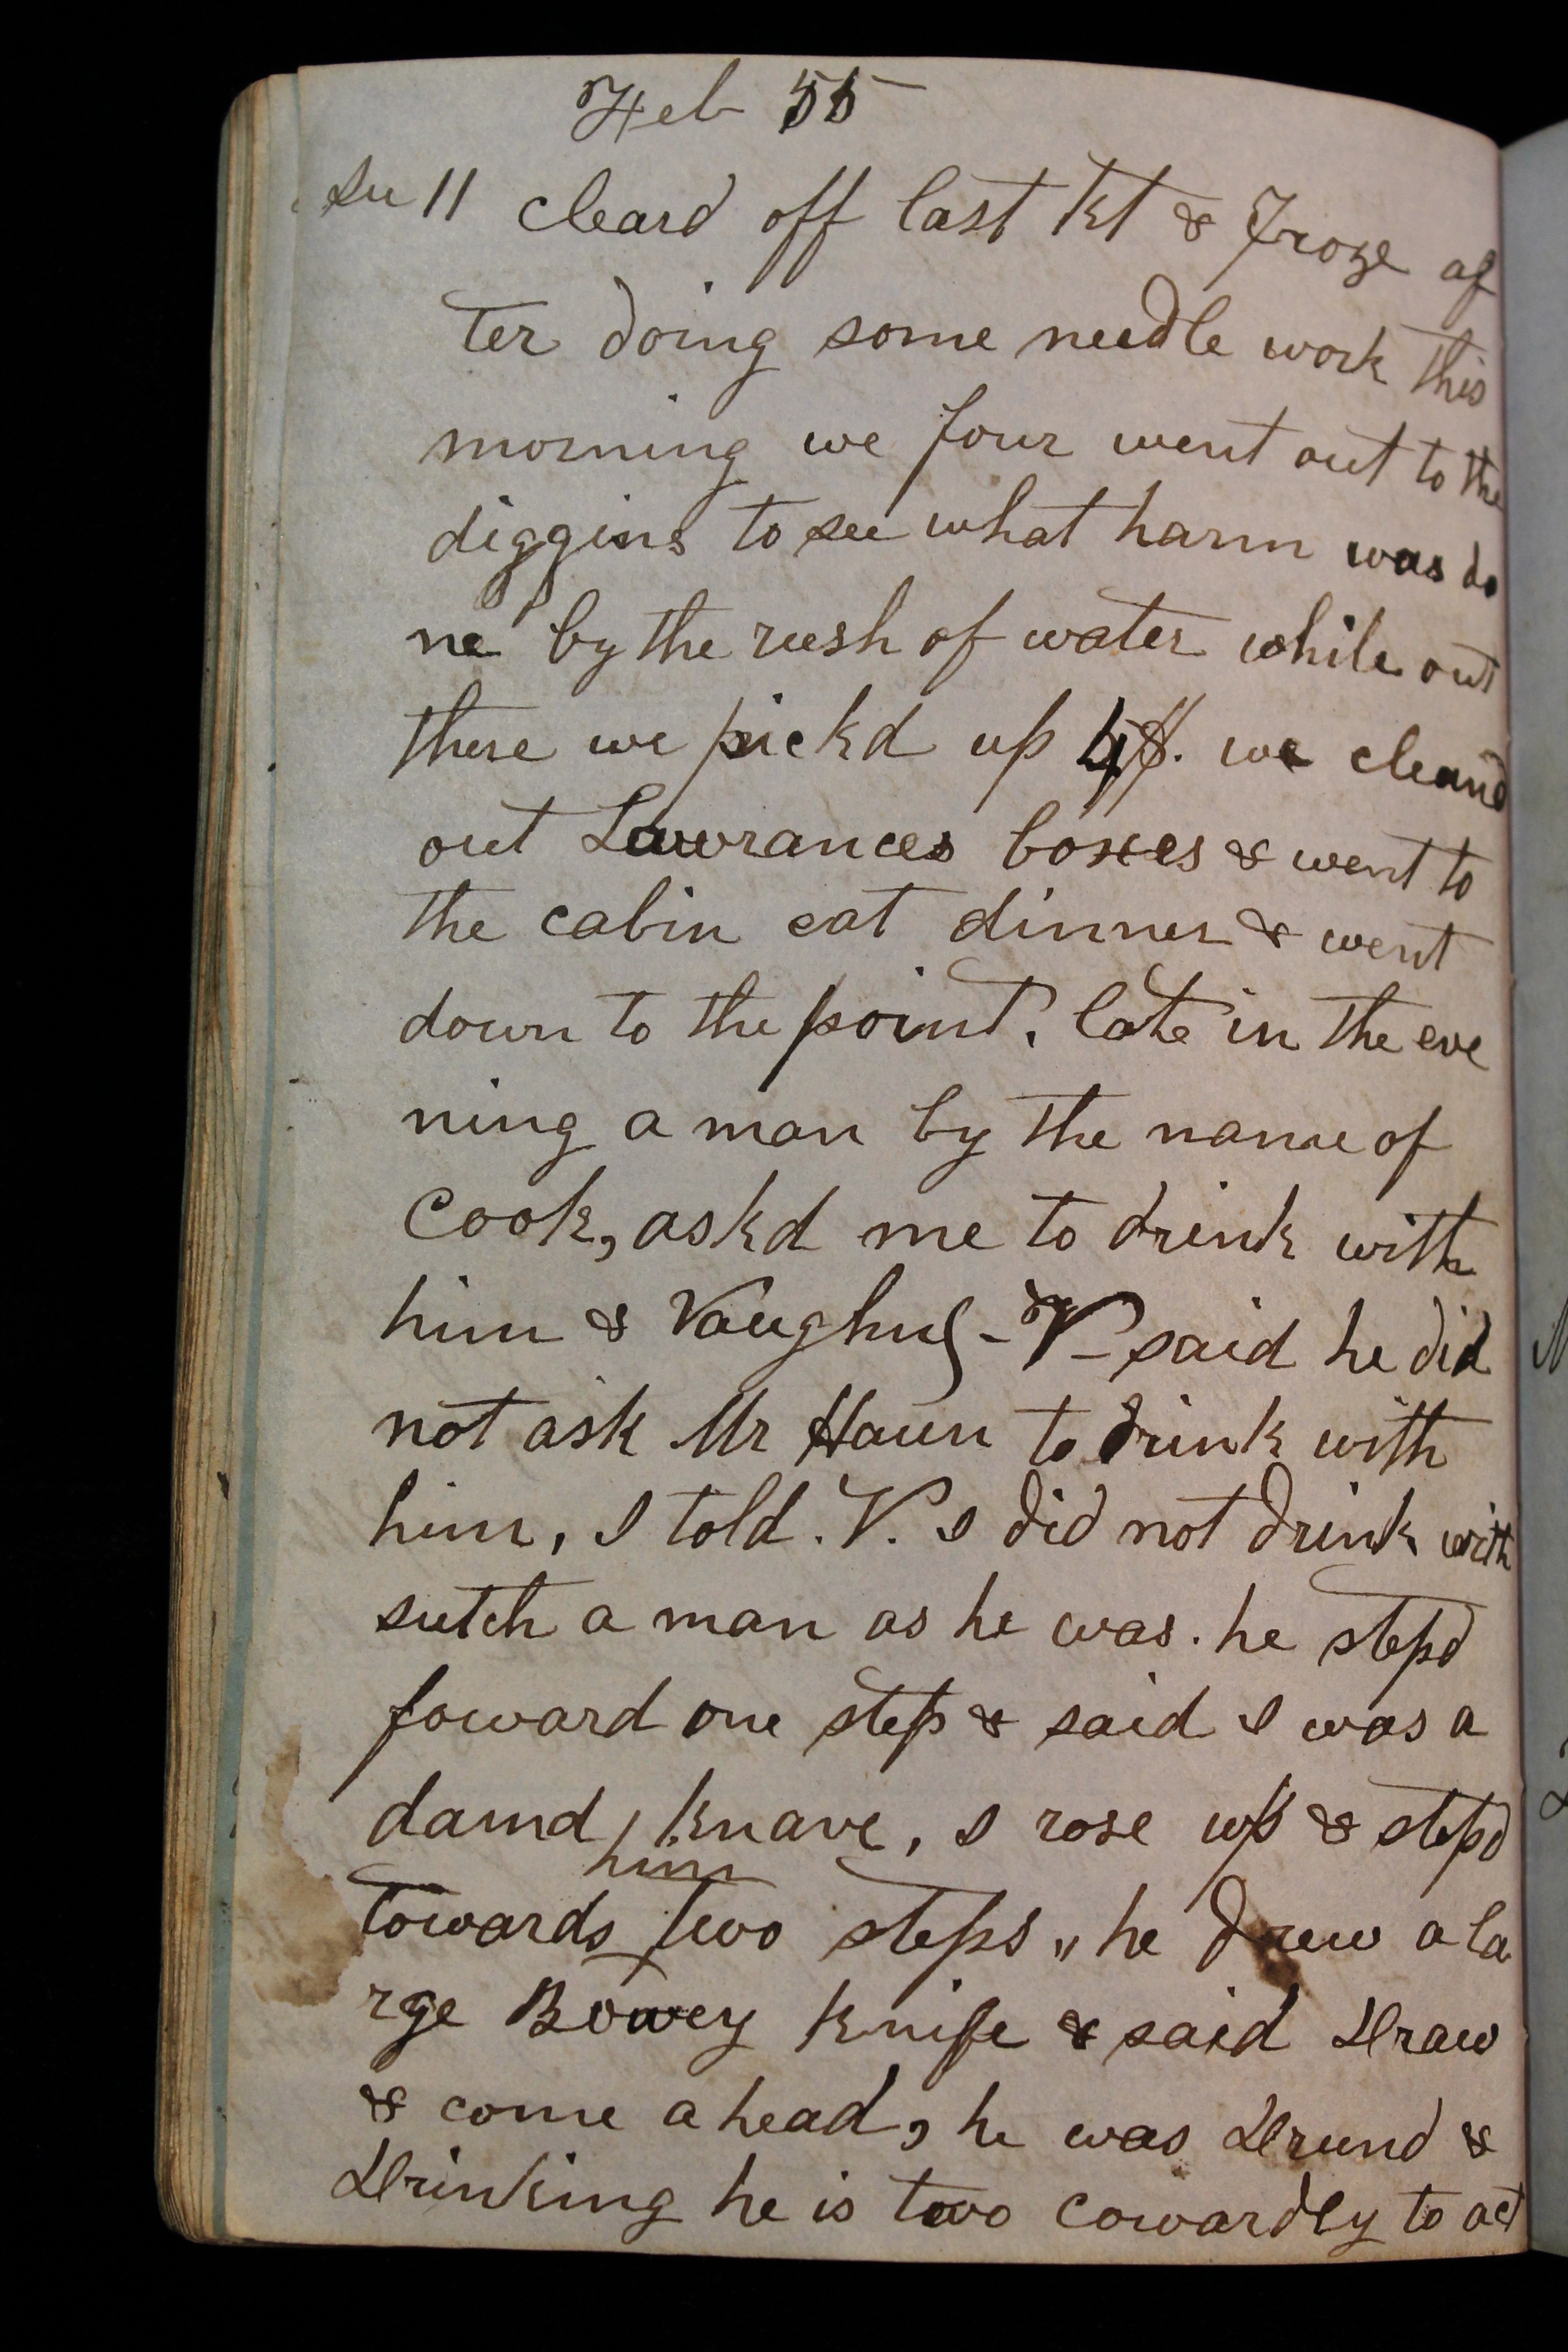 Feb 55
Su 11 cleard off last Nt & Froze af
ter doing some needle work this
morning we four went out to the
diggins to see what harm was do
ne by the rush of water while out
there we pickd up 4$. we cleand
out Lawrances boxes & went to
the cabin eat dinner & went
down to the point. late in the eve
ning a man by the name of
Cook, askd me to drink with
him & Vaughn - V - said he did
not ask Mr Haun to drink with
him, I told. V. I did not drink with
sutch a man as he was. he stepd
foward one step & said I was a
damd knave, I rose up & stepd
him
towards two steps " he drew a la
rge Bowey knife & said Draw
& come a head, he was Drund &
Drinking he is two cowardly to act